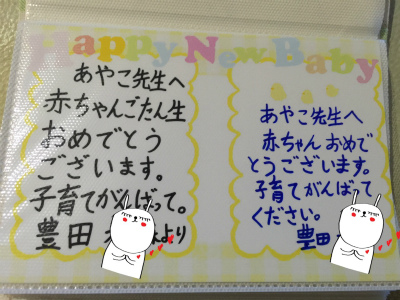 Happy New Baby
あやこ先生へ
赤ちゃんごたん生
おめでとう
ございます。
子育てがんばって。
豊田 より
あやこ先生へ
赤ちゃん おめで
とうございます。
子育てがんばって
ください。
豊田